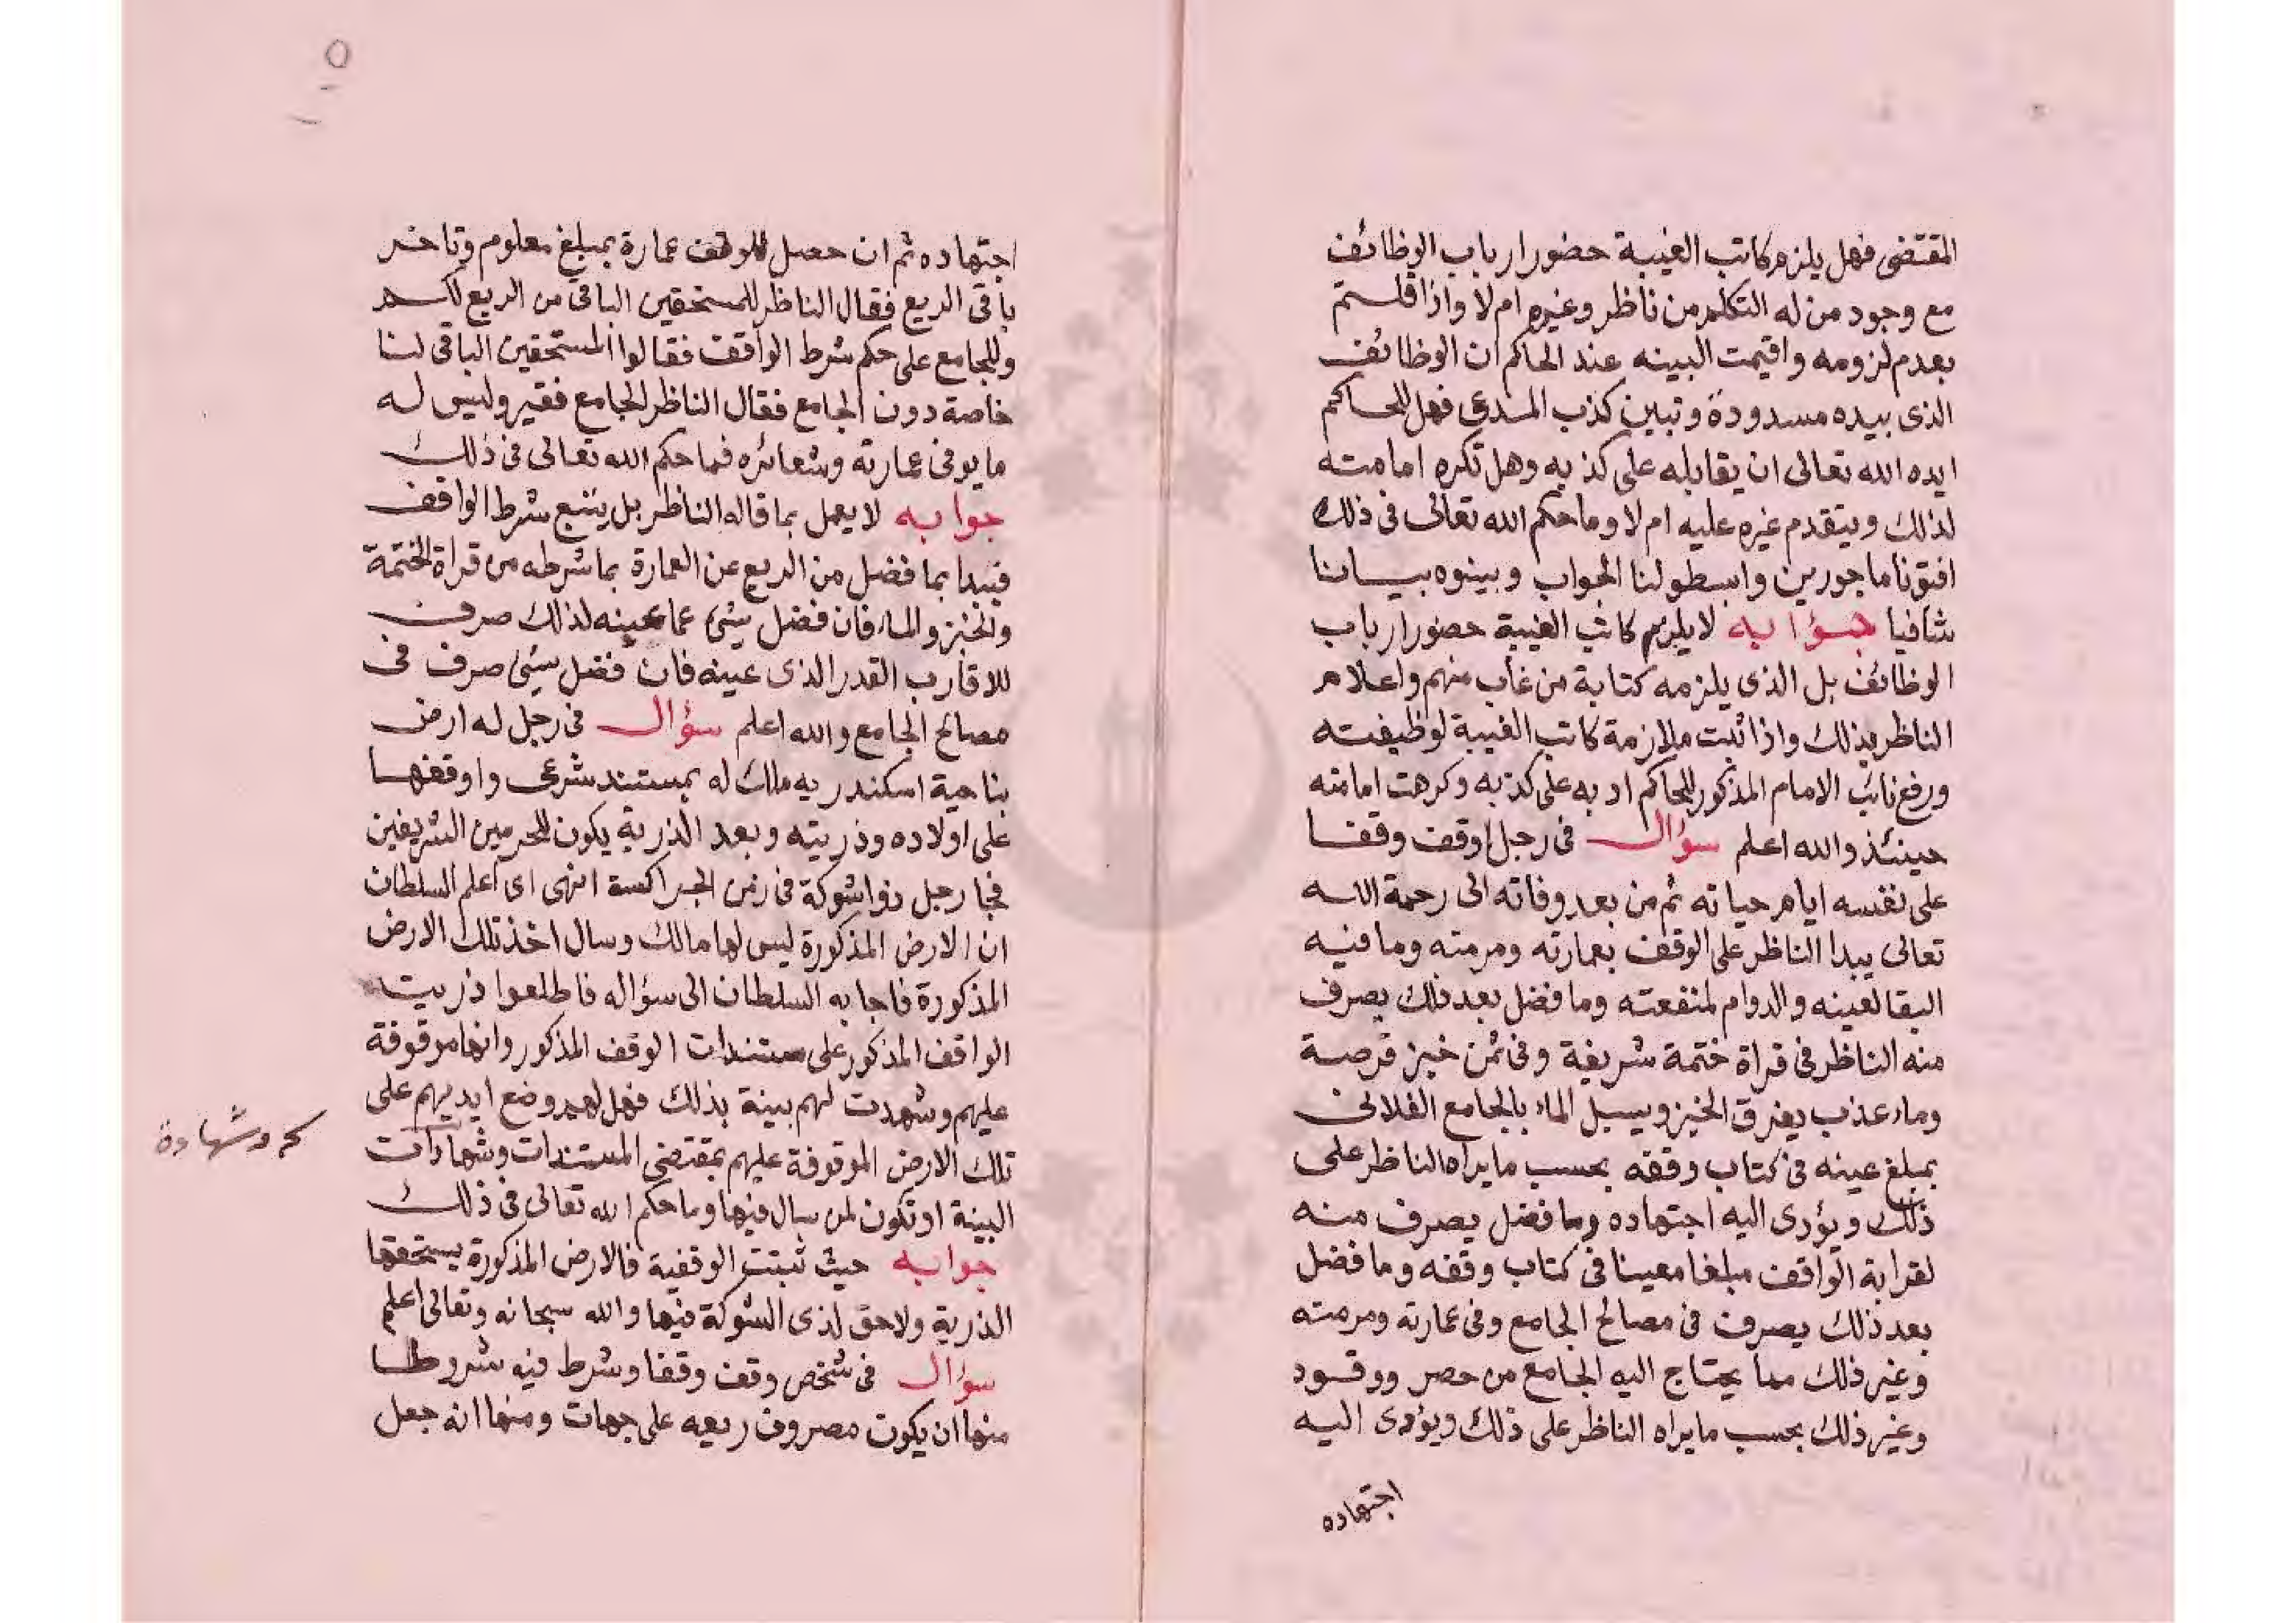 المقتضى فهل يلزم كاتب الغيبة حضور ارباب الوظائف
مع وجود من له التكلم من ناظر وغيره ام لا واذا قلتم
بعدم لزومه واقيمت البينه عند الحاكم ان الوظائف
الذى بيده مسدودة وتبين كذب المدعى فهل للحاكم
ايده الله تعالى ان يقابله على كذبه وهل تكره امامته
لذلك ويتقدم غيره عليه ام لا وما حكم الله تعالى فى ذلك
افتونا ماجورين وابسطو لنا الجواب وبينوه بيانا
شافيا جوابه لا يلزم كاتب الغيبة حضور ارباب
الوظائف بل الذى يلزمه كتابة من غاب منهم واعلام
الناظر بذلك واذا ثبت ملازمة كاتب الغيبة لوظيفته
ورفع نائب الامام المذكور للحاكم ادبه على كذبه وكرهت امامته
حينئذ والله اعلم سؤال فى رجل اوقف وقفا
على نفسه ايام حياته ثم من بعد وفاته الى رحمة الله
تعالى يبدا الناظر على الوقف بعمارته ومرمته وما فيه
البقا لعينه والدوام لمنفعته وما فضل بعد ذلك يصرف
منه الناظر فى قراة ختمة شريفة وفى ثمن خبز قرصة
وماء عذب يفرق الخبز ويسبل الماء بالجامع الفلانى
بمبلغ عينه فى كتاب وقفه بحسب ما يراه الناظر على
ذلك ويؤدى اليه اجتهاده وما فضل يصرف منه
لقرابة الواقف مبلغا معينا فى كتاب وقفه وما فضل
بعد ذلك يصرف فى مصالح الجامع وفى عمارته ومرمته
وغير ذلك مما يحتاج اليه الجامع من حصر ووقود
وغير ذلك بحسب ما يراه الناظر على ذلك ويؤدى اليه
اجتهاده
٥
اجتهاده ثم ان حصل للوقف عمارة بمبلغ معلوم وتاخر
باقى الريع فقال الناظر للمستحقين الباقى من الريع لكم
وللجامع على حكم شرط الواقف فقالوا المستحقين الباقى لنا
خاصة دون الجامع فقال الناظر الجامع فقير وليس له
ما يوفى عمارته وشعائره فما حكم الله تعالى فى ذلك
جوابه لا يعمل بما قاله الناظر بل يتبع شرط الواقف
فيبدا بما فضل من الريع عن العمارة بما شرطه من قراة الختمة
والخبز والماء فان فضل شىء عما عينه لذلك صرف
للاقارب القدر الذى عينه فان فضل شىء صرف فى
مصالح الجامع والله اعلم سؤال فى رجل له ارض
بناحية اسكندريه ملك له بمستند شرعى واوقفها
على اولاده وذريته وبعد الذرية يكون للحرمين الشريفين
فجا رجل ذوا شوكة فى زمن الجراكسة انهى اى اعلم السلطان
ان الارض المذكورة ليس لها مالك وسال اخذ تلك الارض
المذكورة فاجابه السلطان الى سؤاله فاطلعوا ذريت
الواقف المذكور على مستندات الوقف المذكور وانها موقوفة
عليهم وشهدت لهم بينة بذلك فهل لهم وضع ايديهم على
تلك الارض الموقوفة عليهم بمقتضى المستندات وشهادات
البينة او تكون لمن سال فيها وما حكم الله تعالى فى ذلك
جوابه حيث ثبتت الوقفية فالارض المذكورة يستحقها
الذرية ولا حق لذى الشوكة فيها والله سبحانه وتعالى اعلم
سؤال فى شخص وقف وقفا وشرط فيه شروطا
منها ان يكون مصروف ريعه على جهات ومنها انه جعل
وشهادة